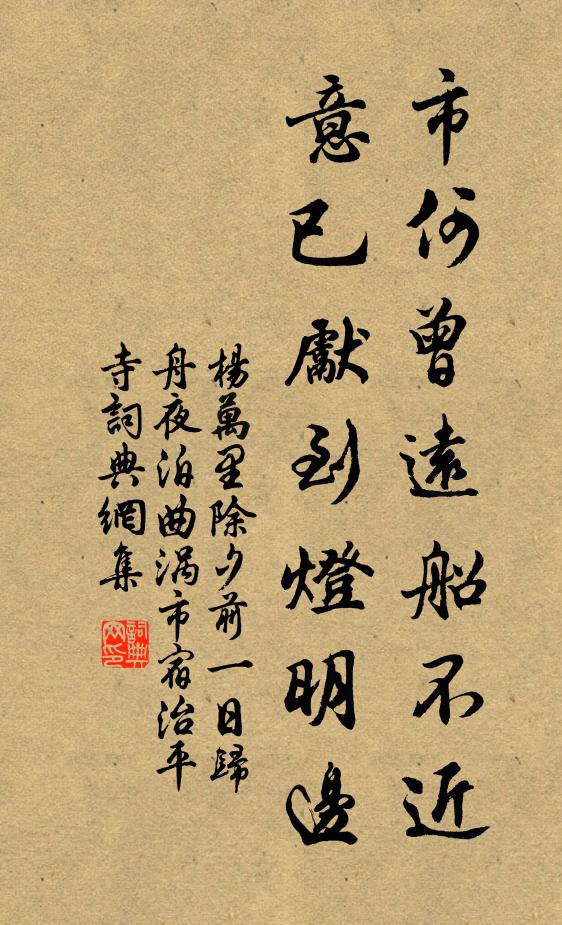 市何曾遠船不近
意已獻到燈明邊
楊萬里除夕前一日歸
舟夜泊曲涡市宿治平
寺詞典網集
詞典
网印